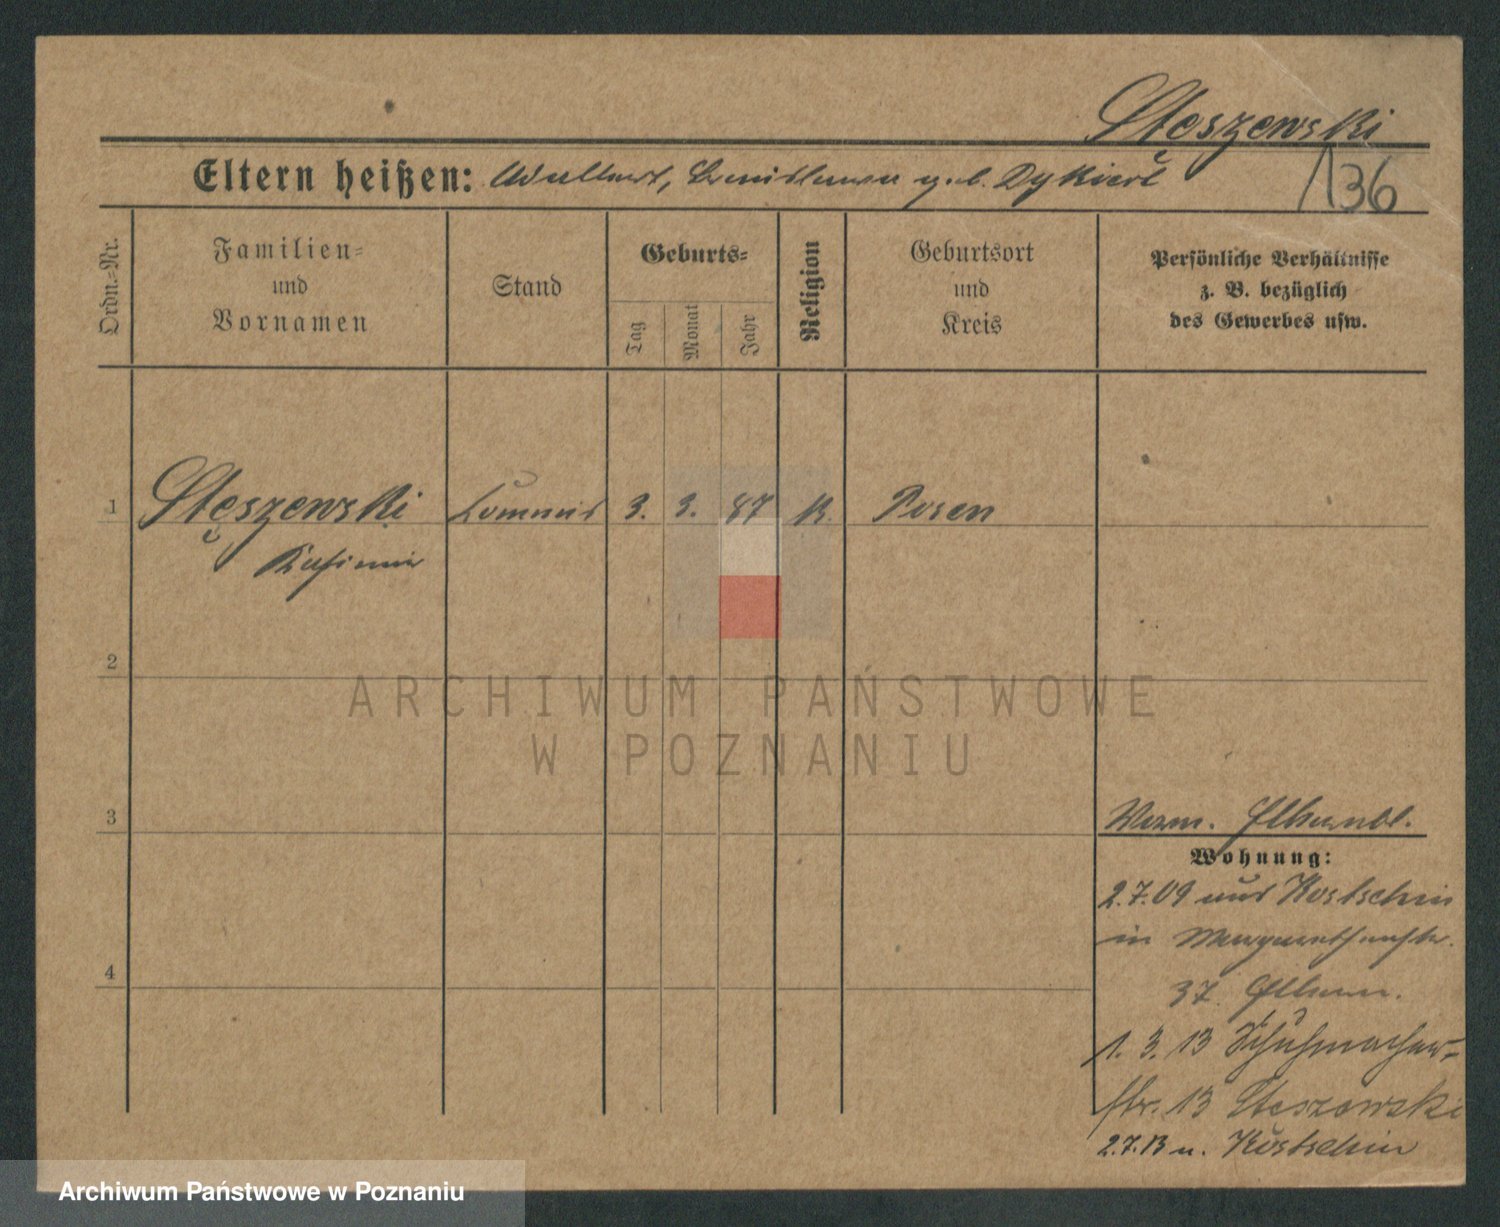 Stęszewski
Eltern heißen: Adalbert, Bronislawa geb. Dykiert
136
Ordn.-Nr.
Familien-
und
Vornamen
Stand
Geburts-
Tag
Monat
Jahr
Religion
Geburtsort
und
Kreis
Persönliche Verhältnisse
z. B. bezüglich
des Gewerbes usw.
1 Stęszewski 3. 3. 87 K. Posen
Kasimir
2
3
4
Wohnung:
2.7.09 aus Kostschin
in Margarethenstr.
37 Eltern.
1. 3. 13 Schuhmacher-
str. 13 Steszewski
2.7.13 n. Kostschin
ARCHIWUM PAŃSTWOWE
W POZNANIU
Archiwum Państwowe w Poznaniu